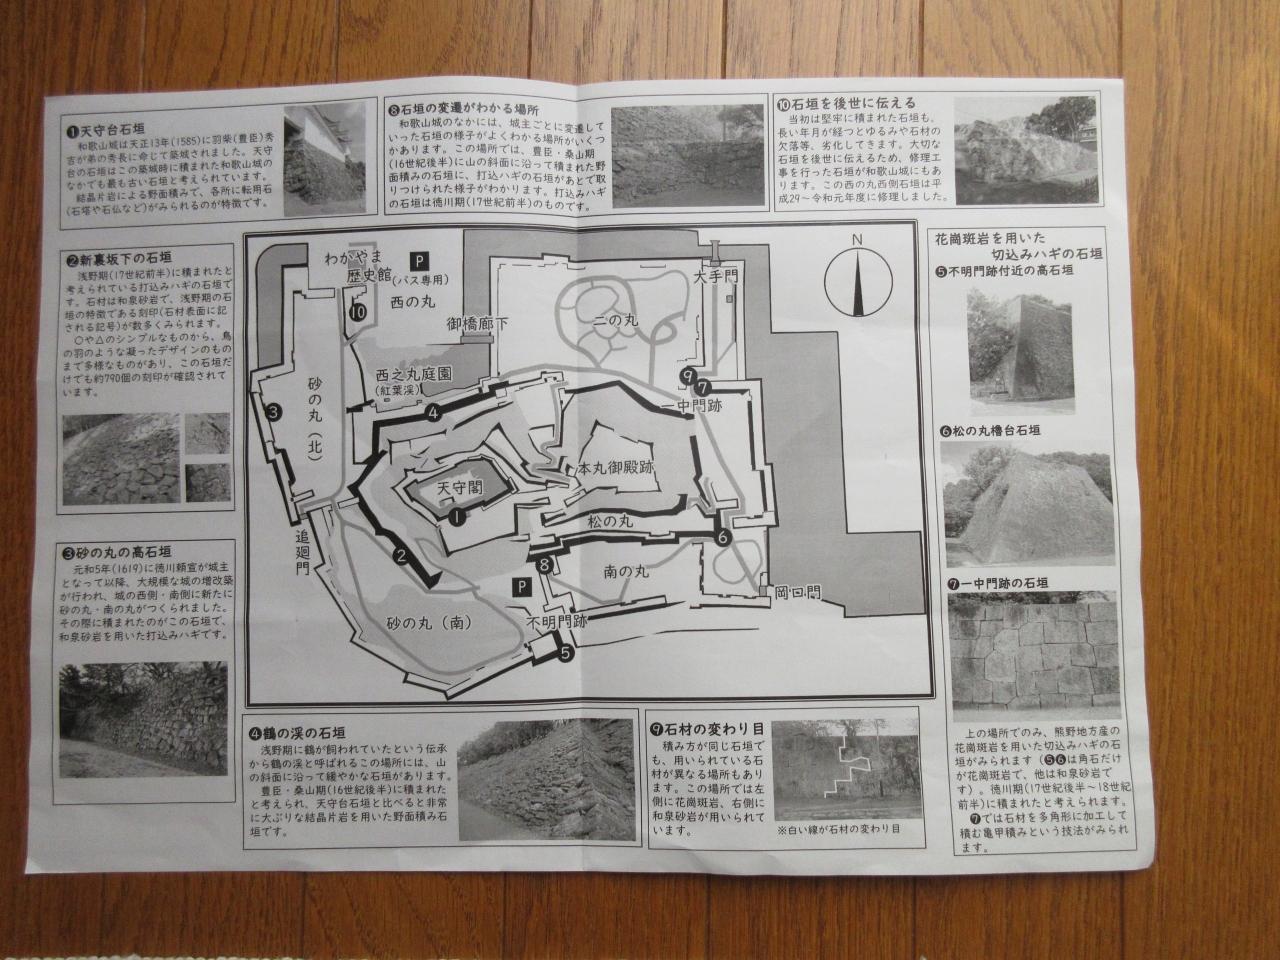 ❶天守台石垣
和歌山城は天正13年(1585)に羽柴(豊臣)秀
吉が弟の秀長に命じて築城されました。天守
台の石垣はこの築城時に積まれた和歌山城の
なかでも最も古い石垣と考えられています。
結晶片岩による野面積みで、各所に転用石
(石塔や石仏など)がみられるのが特徴です。
❽石垣の変遷がわかる場所
和歌山城のなかには、城主ごとに変遷して
いった石垣の様子がよくわかる場所がいくつ
かあります。この場所では、豊臣・桑山期
(16世紀後半)に山の斜面に沿って積まれた野
面積みの石垣に、打込ハギの石垣があとで取
りつけられた様子がわかります。打込みハギ
の石垣は徳川期(17世紀前半)のものです。
❿石垣を後世に伝える
当初は堅牢に積まれた石垣も、
長い年月が経つとゆるみや石材の
欠落等、劣化してきます。大切な
石垣を後世に伝えるため、修理工
事を行った石垣が和歌山城にもあ
ります。この西の丸西側石垣は平
成29〜令和元年度に修理しました。
❷新裏坂下の石垣
浅野期(17世紀前半)に積まれたと
考えられている打込みハギの石垣で
す。石材は和泉砂岩で、浅野期の石
垣の特徴である刻印(石材表面に記
される記号)が数多くみられます。
○や△のシンプルなものから、鳥
の羽のような凝ったデザインのもの
まで多様なものがあり、この石垣だ
けでも約790個の刻印が確認されて
います。
❸砂の丸の高石垣
元和5年(1619)に徳川頼宣が城主
となって以降、大規模な城の増改築
が行われ、城の西側・南側に新たに
砂の丸・南の丸がつくられました。
その際に積まれたのがこの石垣で、
和泉砂岩を用いた打込みハギです。
わかやま
歴史館
P
(バス専用)
❿
西の丸
御橋廊下
二の丸
大手門
N
西之丸庭園
(紅葉渓)
砂の丸(北)
❸
❹
❾
❼
一中門跡
本丸御殿跡
天守閣
❶
松の丸
❻
追廻門
❷
❽
南の丸
P
岡口門
砂の丸(南)
不明門跡
❺
花崗斑岩を用いた
切込みハギの石垣
❺不明門跡付近の高石垣
❻松の丸櫓台石垣
❼一中門跡の石垣
上の場所でのみ、熊野地方産の
花崗斑岩を用いた切込みハギの石
垣がみられます(❺❻は角石だけ
が花崗斑岩で、他は和泉砂岩で
す)。徳川期(17世紀後半〜18世紀
前半)に積まれたと考えられます。
❼では石材を多角形に加工して
積む亀甲積みという技法がみられ
ます。
❹鶴の渓の石垣
浅野期に鶴が飼われていたという伝承
から鶴の渓と呼ばれるこの場所には、山
の斜面に沿って緩やかな石垣があります。
豊臣・桑山期(16世紀後半)に積まれた
と考えられ、天守台石垣と比べると非常
に大ぶりな結晶片岩を用いた野面積み石
垣です。
❾石材の変わり目
積み方が同じ石垣で
も、用いられている石
材が異なる場所もあり
ます。この場所では左
側に花崗斑岩、右側に
和泉砂岩が用いられて
います。
※白い線が石材の変わり目